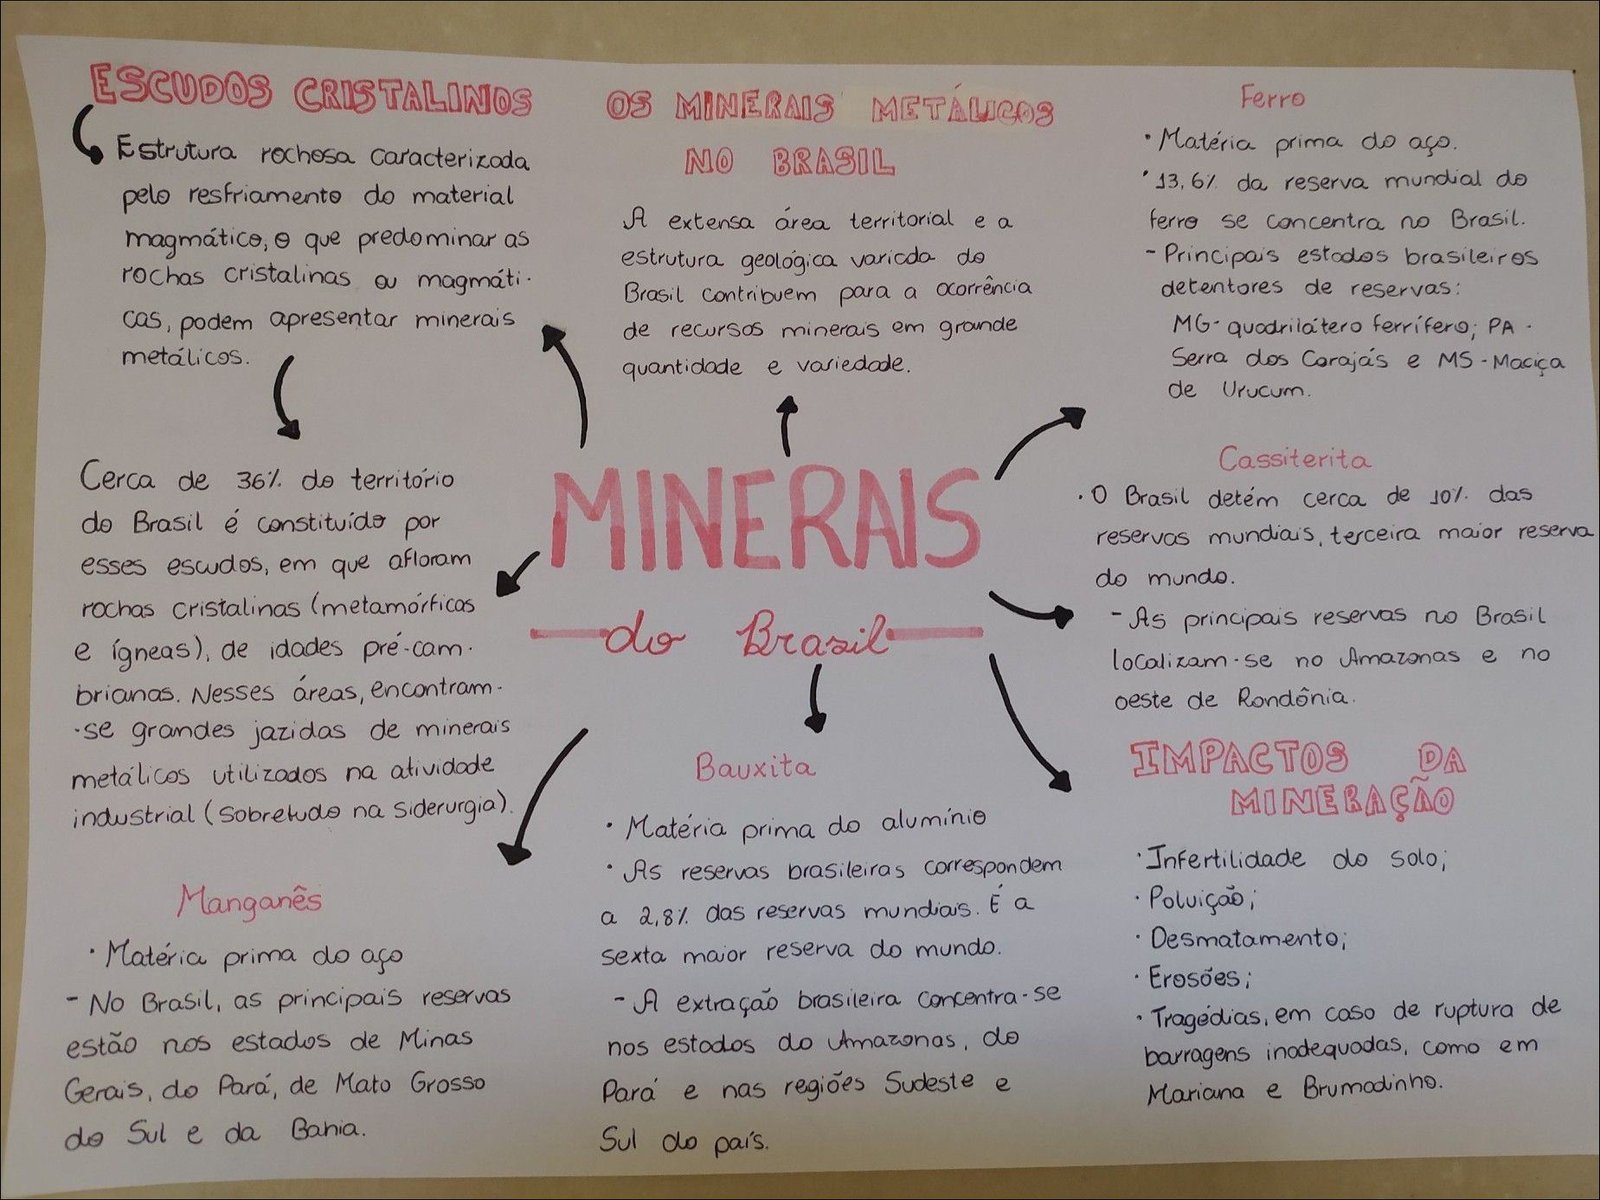 ESCUDOS CRISTALINOS
Estrutura rochosa caracterizada
pelo resfriamento do material
magmático, o que predominar as
rochas cristalinas ou magmáti-
cas, podem apresentar minerais
metálicos.
Cerca de 36% do território
do Brasil é constituído por
esses escudos, em que afloram
rochas cristalinas (metamórficas
e ígneas), de idades pré-cam-
brianas. Nesses áreas, encontram-
-se grandes jazidas de minerais
metálicos utilizados na atividade
industrial (sobretudo na siderurgia).
Manganês
• Matéria prima do aço
- No Brasil, as principais reservas
estão nos estados de Minas
Gerais, do Pará, de Mato Grosso
do Sul e da Bahia.
OS MINERAIS METÁLICOS
NO BRASIL
A extensa área territorial e a
estrutura geológica variada do
Brasil contribuem para a ocorrência
de recursos minerais em grande
quantidade e variedade.
MINERAIS
do Brasil
Bauxita
• Matéria prima do alumínio
• As reservas brasileiras correspondem
a 2,8% das reservas mundiais. É a
sexta maior reserva do mundo.
- A extração brasileira concentra-se
nos estados do Amazonas, do
Pará e nas regiões Sudeste e
Sul do país.
Ferro
• Matéria prima do aço.
• 13,6% da reserva mundial do
ferro se concentra no Brasil.
- Principais estados brasileiros
detentores de reservas:
MG- quadrilátero ferrífero; PA -
Serra dos Carajás e MS - Maciça
de Urucum.
Cassiterita
• O Brasil detém cerca de 10% das
reservas mundiais, terceira maior reserva
do mundo.
- As principais reservas no Brasil
localizam-se no Amazonas e no
oeste de Rondônia.
IMPACTOS DA
MINERAÇÃO
• Infertilidade do solo;
• Poluição;
• Desmatamento;
• Erosões;
• Tragédias, em caso de ruptura de
barragens inadequadas, como em
Mariana e Brumadinho.